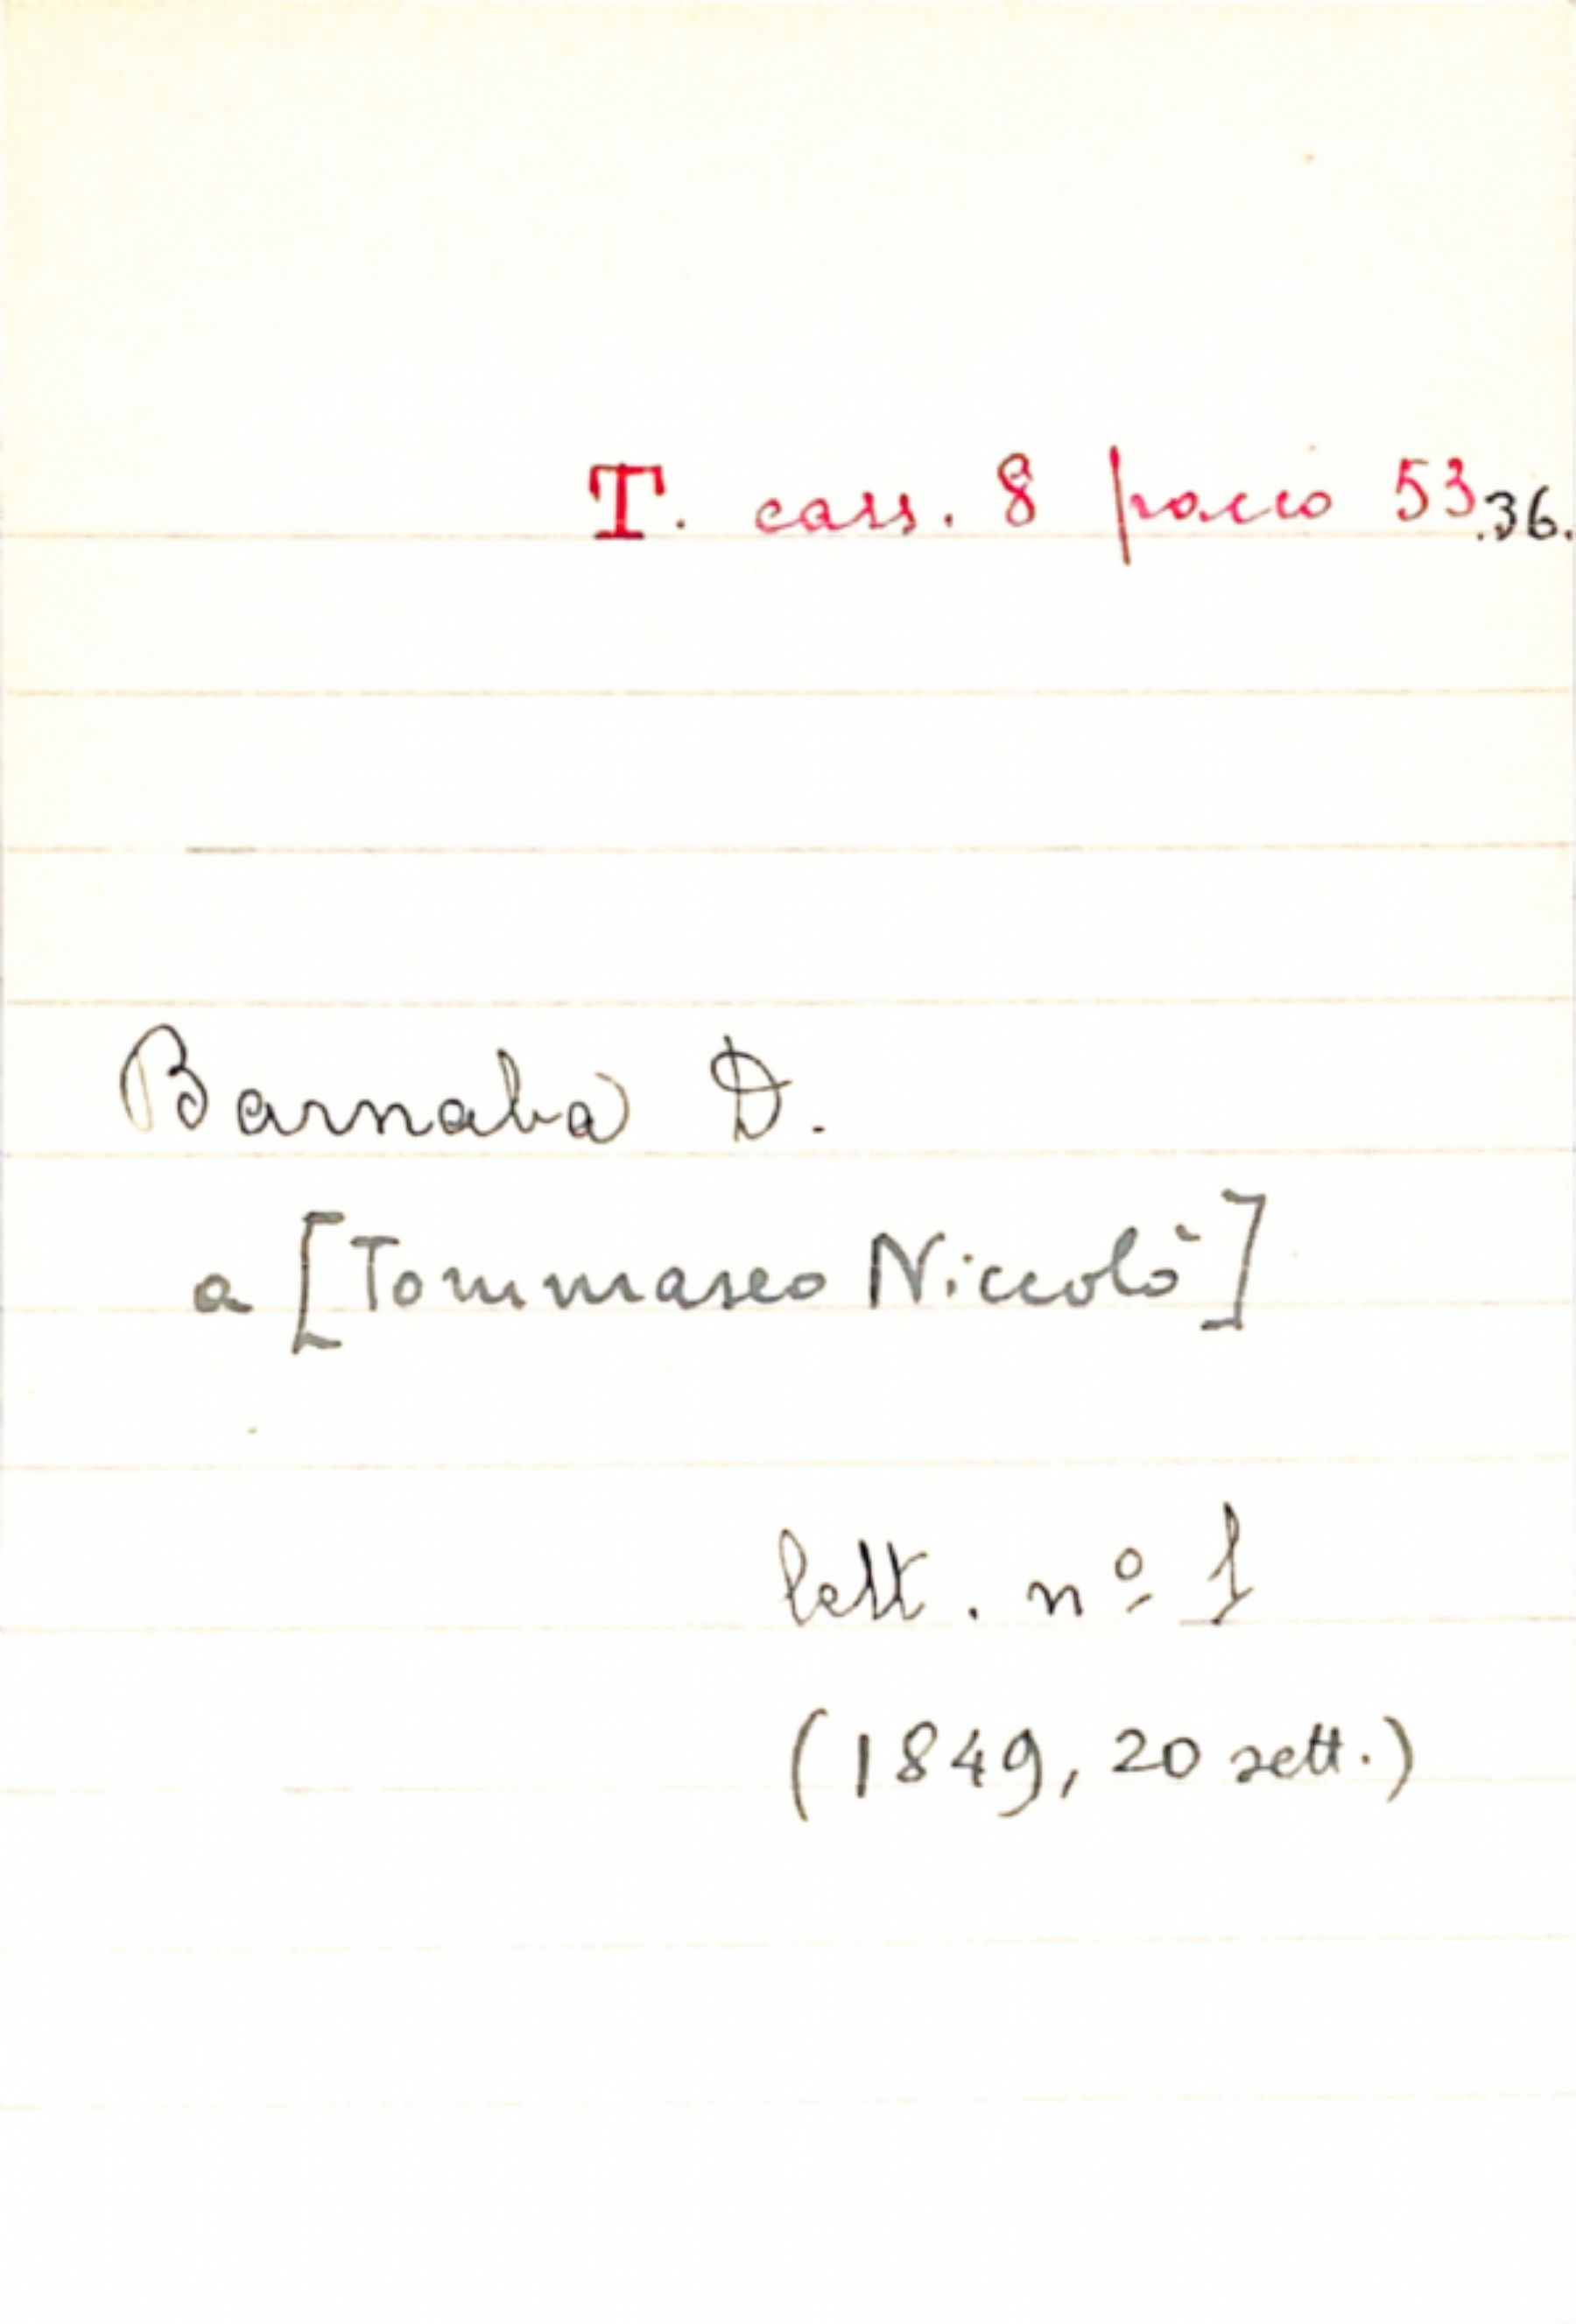 T. cass. 8 pacco 53.36.
Barnaba D.
a [Tommaseo Niccolò]
lett. nº 1
(1849, 20 sett.)